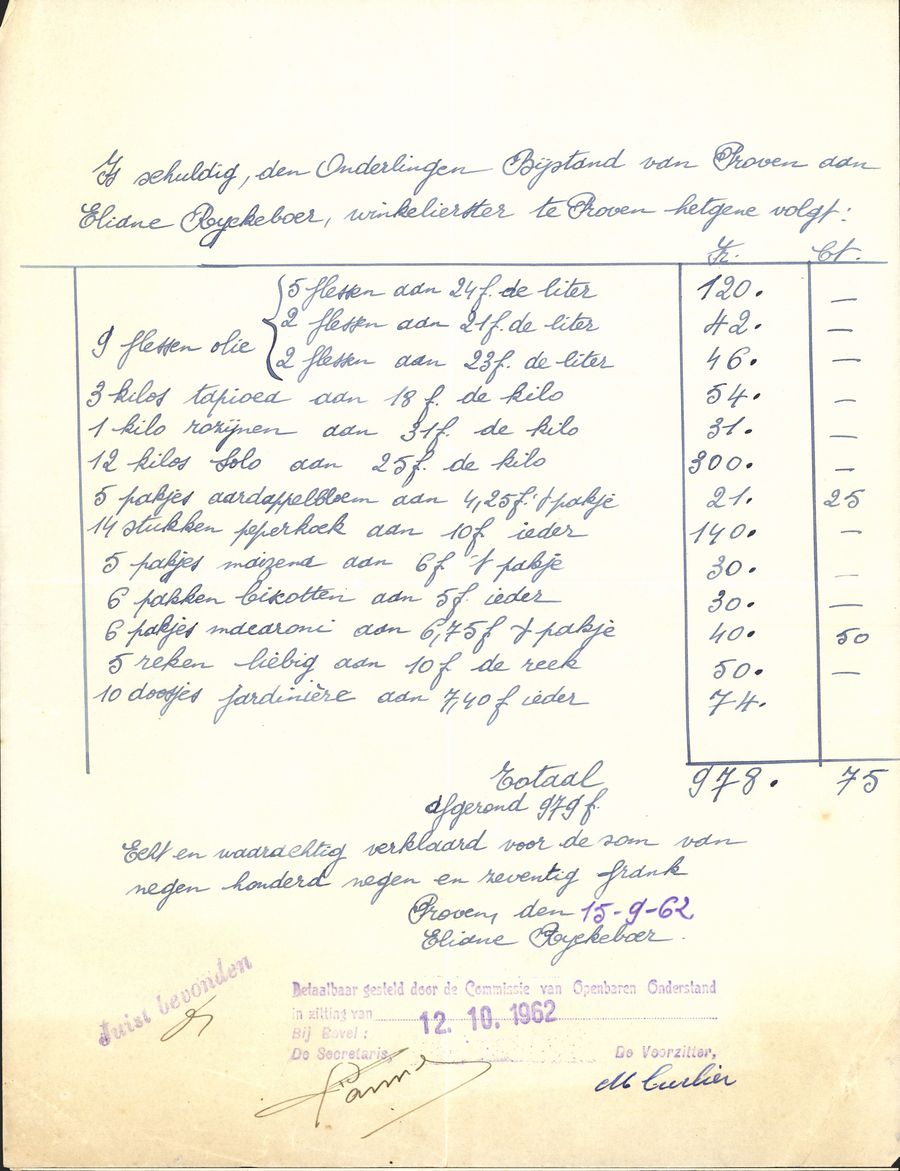 Is schuldig, den Onderlingen Bijstand van Proven aan
Eliane Ryckeboer, winkelierster te Proven hetgene volgt:
Fr. Ct.
5 flessen aan 24f. de liter 120. —
9 flessen olie 2 flessen aan 21f. de liter 42. —
2 flessen aan 23f. de liter 46. —
3 kilos tapioca aan 18f. de kilo 54. —
1 kilo rozijnen aan 31f. de kilo 31. —
12 kilos Solo aan 25f. de kilo 300. —
5 pakjes aardappelbloem aan 4,25f. 't pakje 21. 25
14 stukken peperkoek aan 10f ieder 140. —
5 pakjes maizena aan 6f 't pakje 30. —
6 pakken biscotten aan 5f. ieder 30. —
6 pakjes macaroni aan 6,75f 't pakje 40. 50
5 reken liebig aan 10f de reek 50. —
10 doosjes jardinière aan 7,40f ieder 74.
Totaal 978. 75
afgerond 979f.
Echt en waarachtig verklaard voor de som van
negen honderd negen en zeventig frank
Proven, den 15-9-62
Eliane Ryckeboer.
Juist bevonden
Betaalbaar gesteld door de Commissie van Openbaren Onderstand
in zitting van 12. 10. 1962
Bij Bevel:
De Secretaris, De Voorzitter,